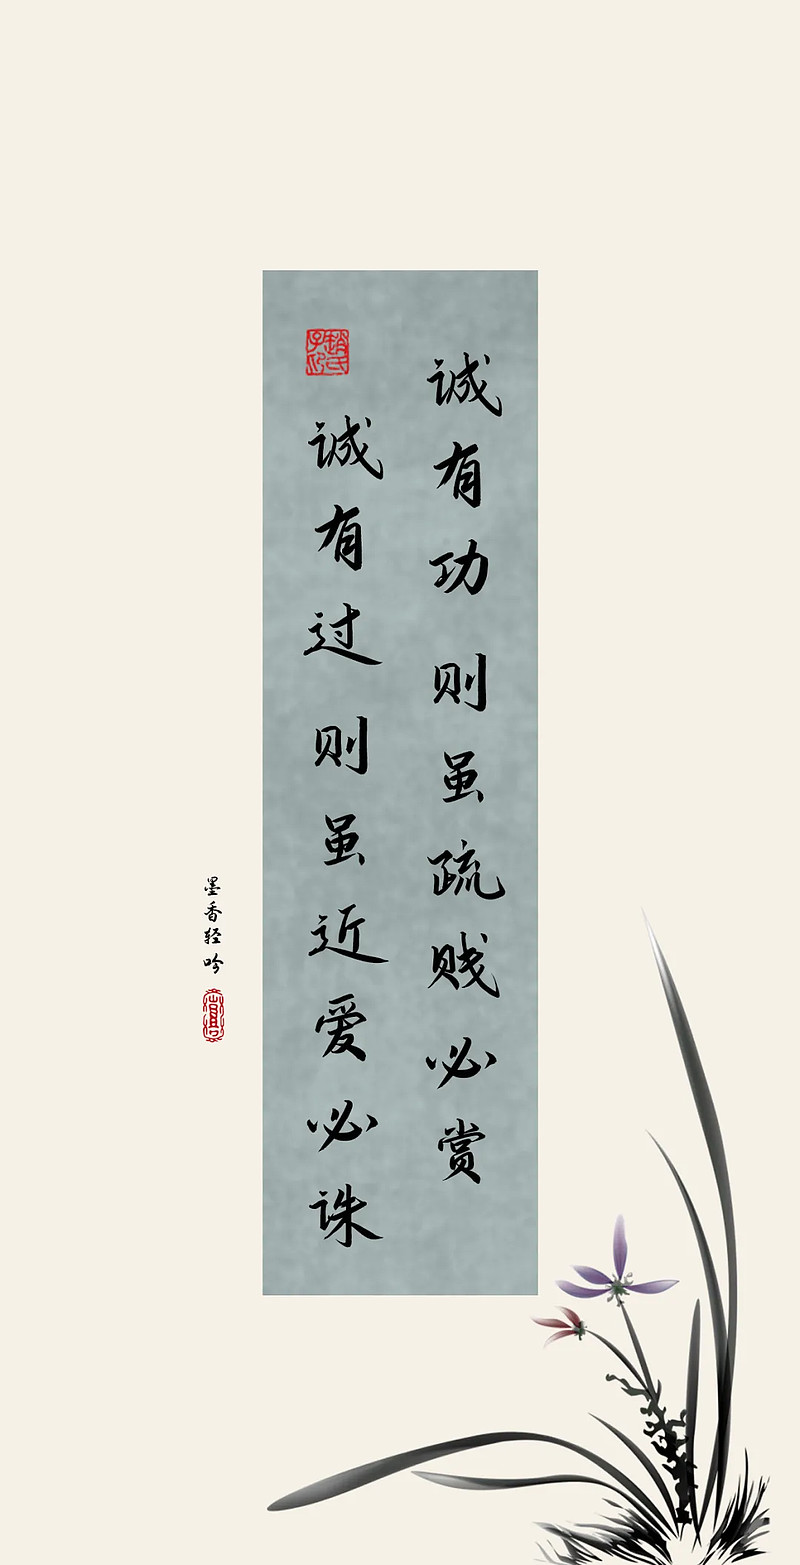 诚有功则虽疏贱必赏
诚有过则虽近爱必诛
墨香轻吟